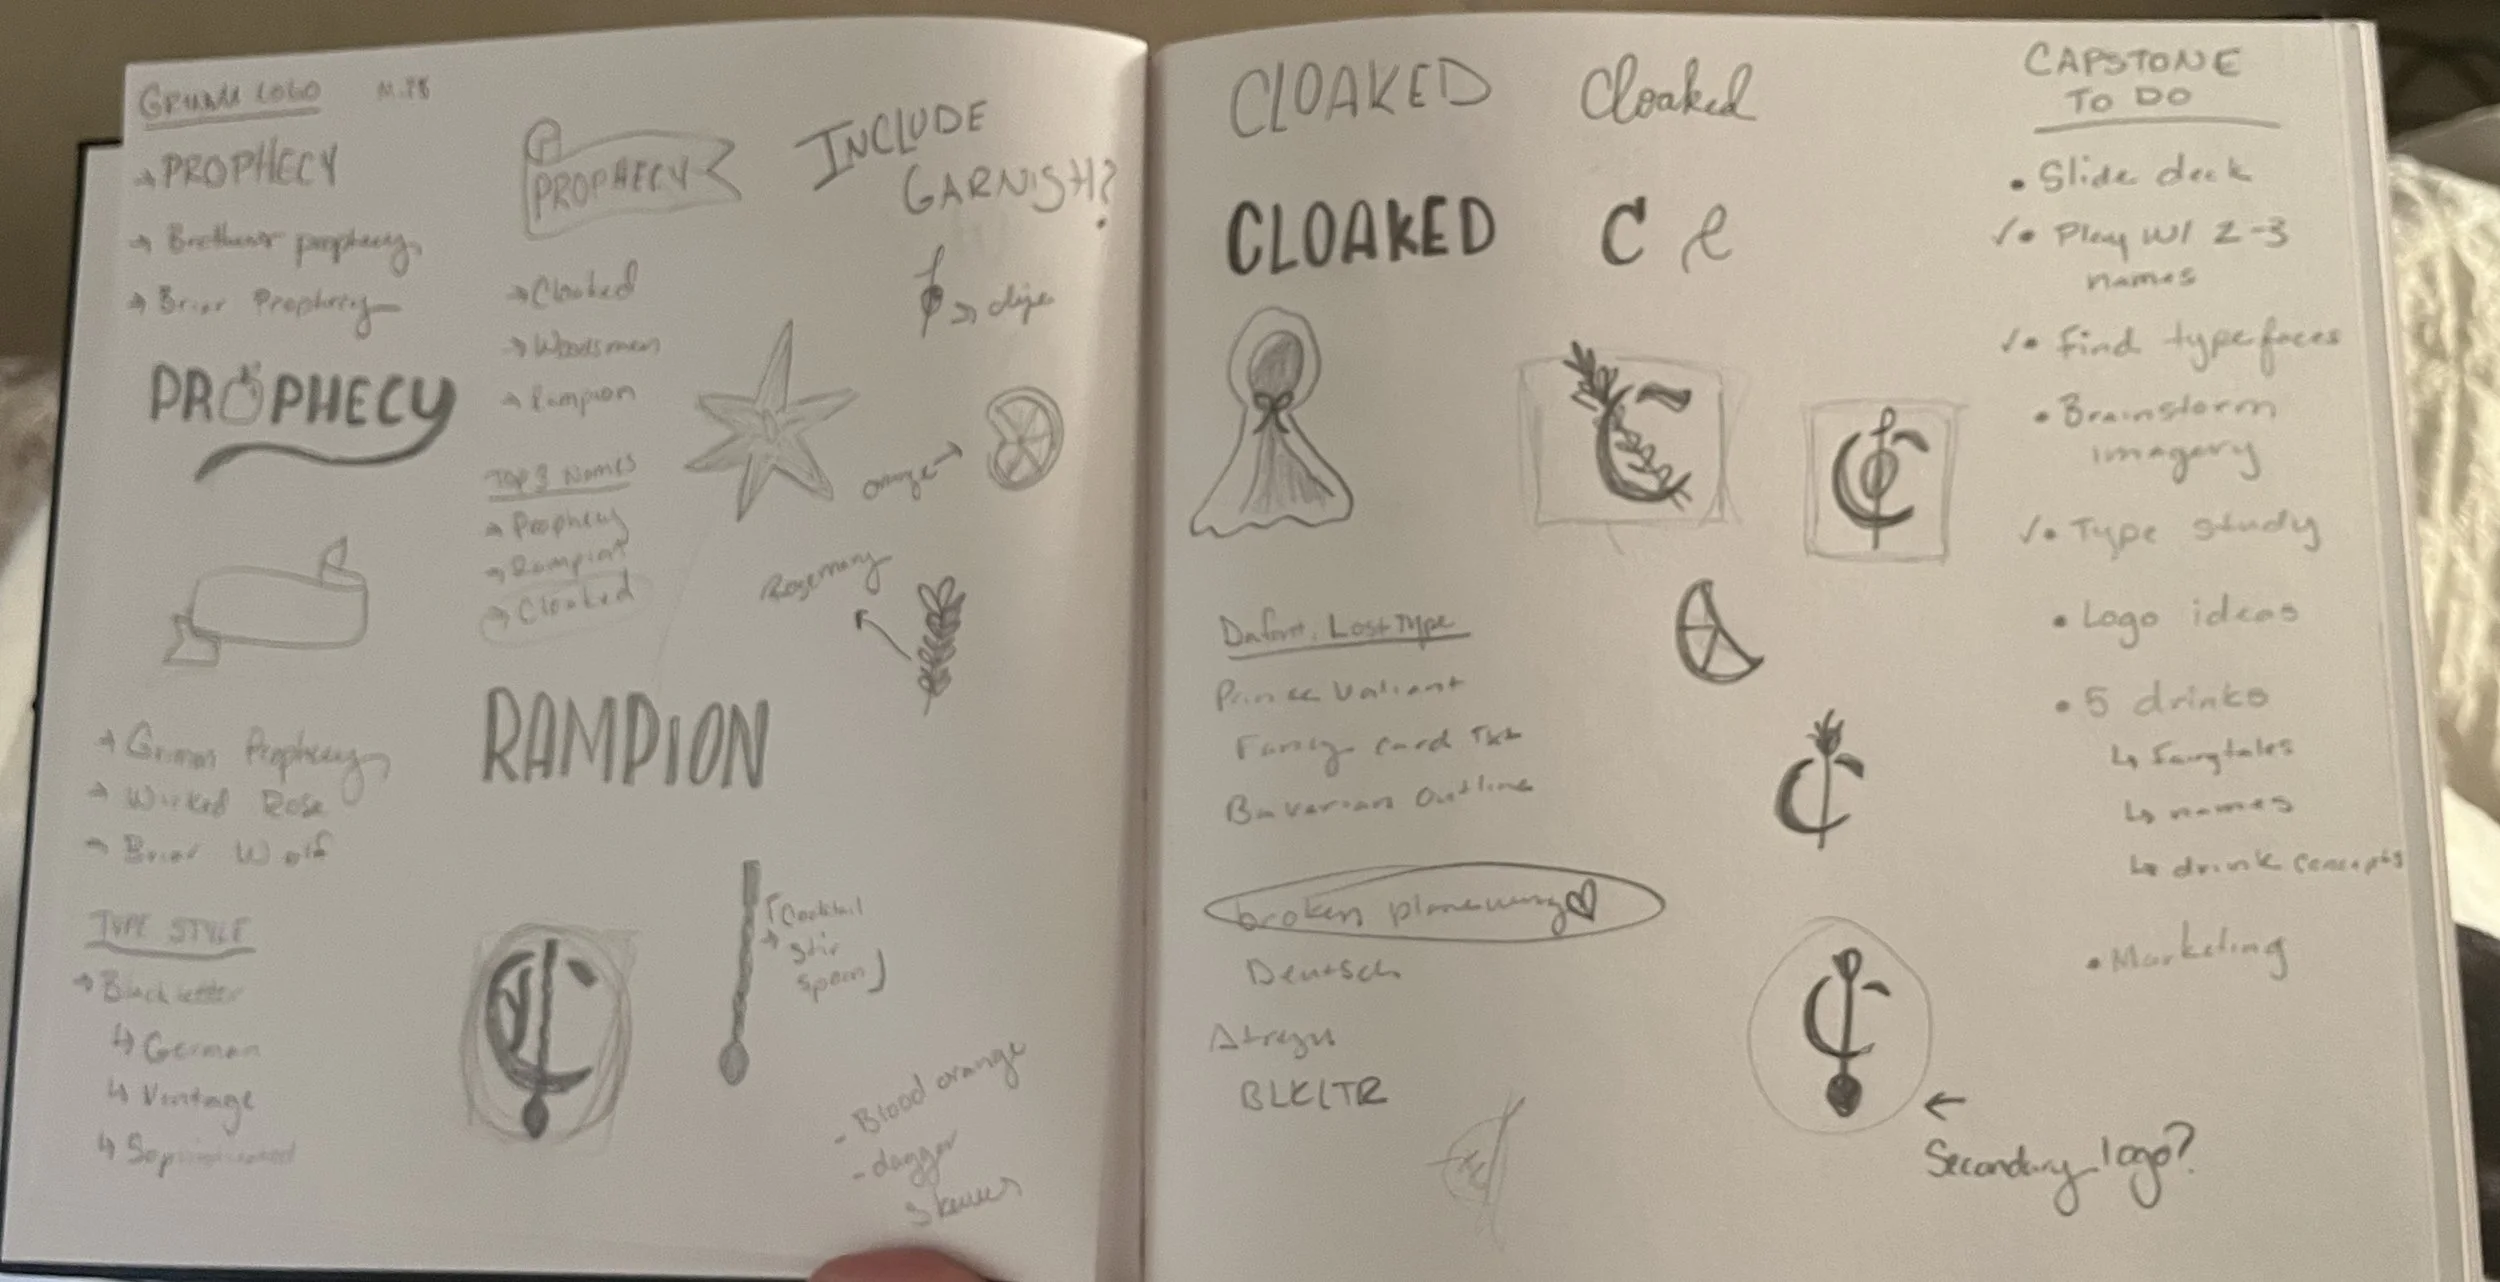 GRIMM LOGO
→ PROPHECY
→ Brothers prophecy
→ Briar Prophecy
PROPHECY
→ Grimm Prophecy
→ Wicked Rose
→ Briar Wolf
TYPE STYLE
→ Blackletter
↳ German
↳ Vintage
↳ Sophisticated
PROPHECY
→ Cloaked
→ Woodsmen
→ Rampion
TOP 3 NAMES
→ Prophecy
→ Rampion
→ Cloaked
RAMPION
[Cocktail
→ stir
spoon]
INCLUDE
GARNISH?
orange →
Rosemary
- Blood orange
- dagger
skewers
CLOAKED
Cloaked
CLOAKED
C C
Dafont, Lost Type
Prince Valiant
Fancy Card Txt
Bavarian Outline
broken planewing ♡
Deutsch
Atreyu
BLKLTR
C
C
C
C
←
Secondary logo?
CAPSTONE
TO DO
• Slide deck
✓• Play w/ 2-3
names
✓• Find typefaces
• Brainstorm
imagery
✓• Type study
• Logo ideas
• 5 drinks
↳ fairytales
↳ names
↳ drink concepts
• Marketing